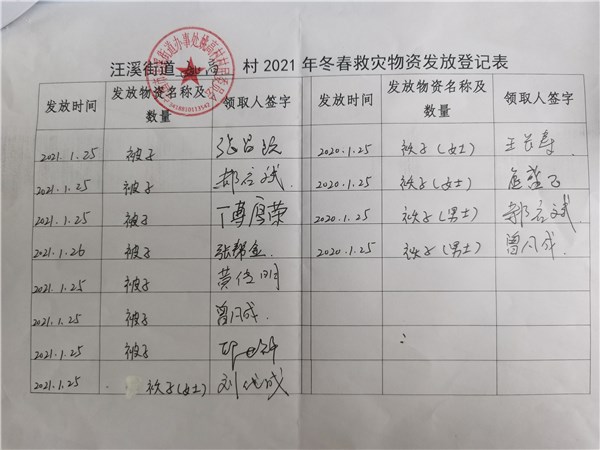 汪溪街道 高 村2021年冬春救灾物资发放登记表
发放时间 发放物资名称及数量 领取人签字 发放时间 发放物资名称及数量 领取人签字
2021.1.25 被子 2020.1.25 袄子(女士) 王长寿
2021.1.25 被子 郝启斌 2020.1.25 袄子(女士)
2021.1.25 被子 丁传厚荣 2020.1.25 袄子(男士) 郝启斌
2021.1.26 被子 张帮金 2020.1.25 袄子(男士) 曾凡成
2021.1.25 被子 黄传明
2021.1.25 被子 曾凡成
2021.1.25 被子
2021.1.25 袄子(女士) 刘成